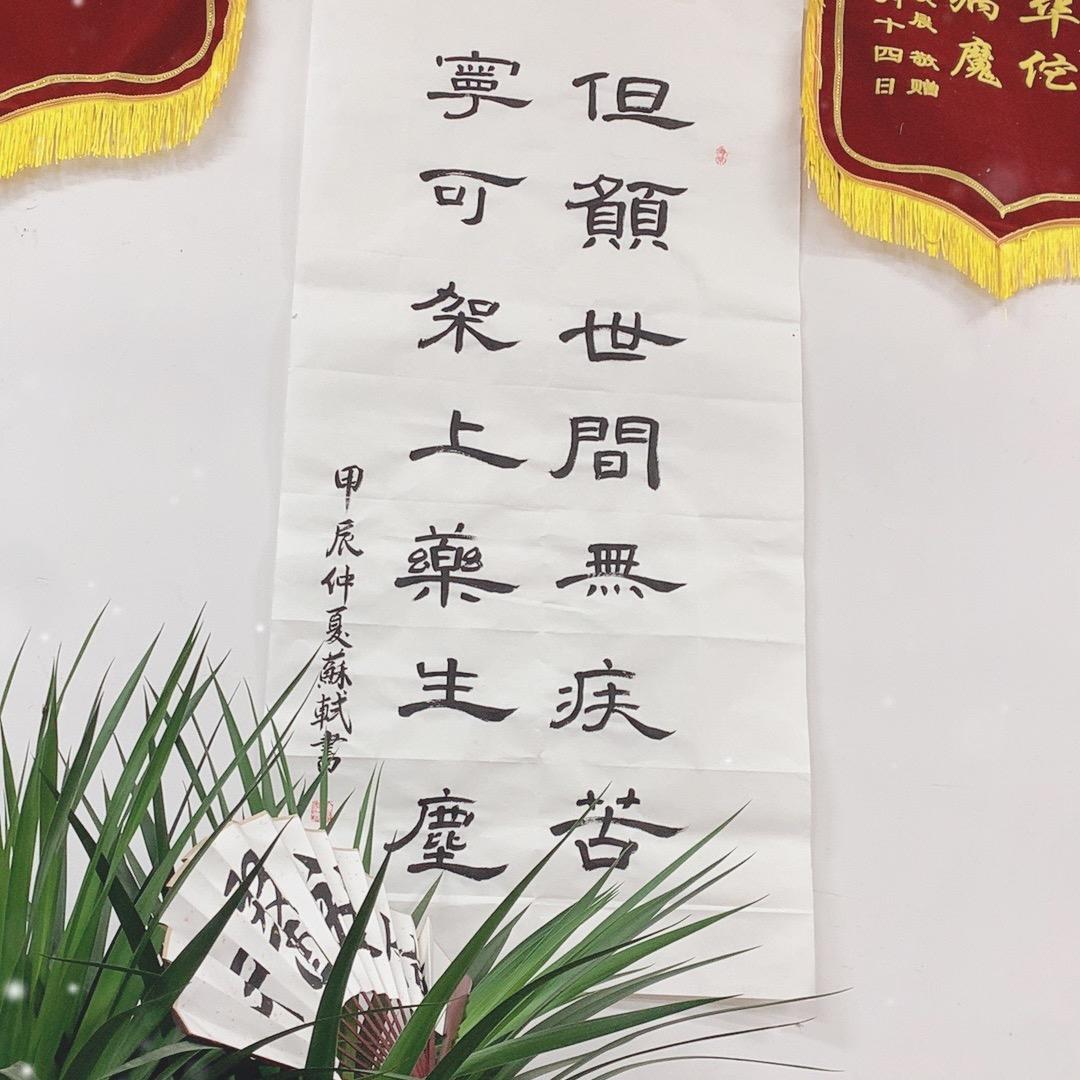 但願世間無疾苦
寧可架上藥生塵
甲辰仲夏蘇軾書
華佗
病魔
敬赠
十四日